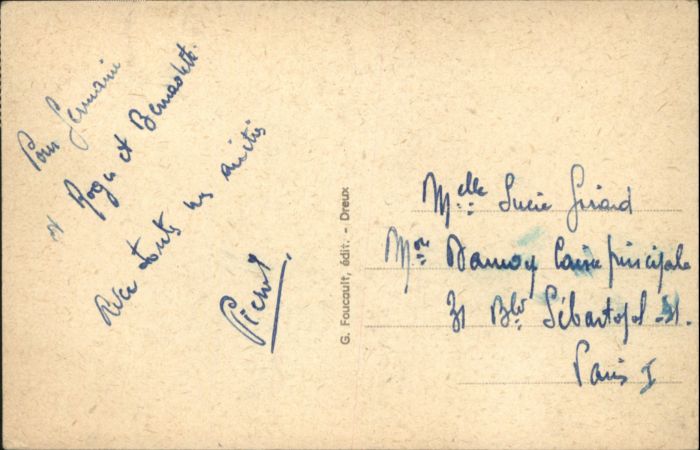 Pour Germaine
et Roger et Bernadette.
Avec toutes mes amitiés
G. Foucault, édit. - Dreux
Melle Lucie Girard
Mon Damoy Caisse principale
31 Bld Sébastopol - 31.
Paris I